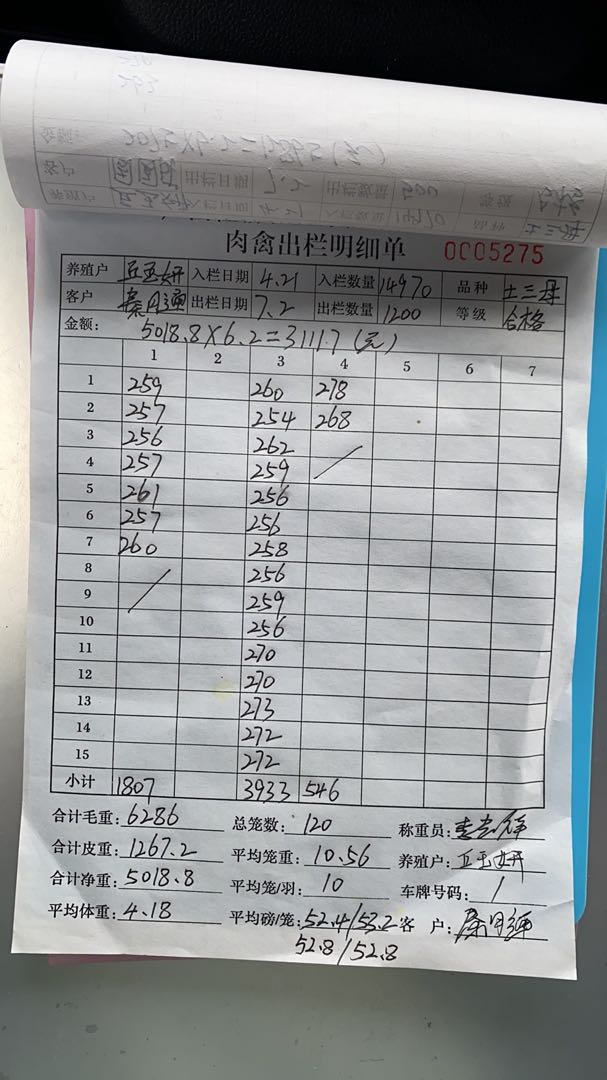 肉禽出栏明细单 0005275
养殖户 入栏日期 4.21 入栏数量 14970 品种 土三母
客户 秦月通 出栏日期 7.2 出栏数量 1200 等级 合格
金额: 5018.8×6.2=3111.7(元)
1 2 3 4 5 6 7
1 259 260 278
2 257 254 268
3 256 262
4 257 259
5 261 256
6 257 256
7 260 258
8 256
9 259
10 256
11 270
12 270
13 273
14 272
15 272
小计 1807 3933 546
合计毛重: 6286 总笼数: 120 称重员:
合计皮重: 1267.2 平均笼重: 10.56 养殖户:
合计净重: 5018.8 平均笼/羽: 10 车牌号码: /
平均体重: 4.18 平均磅/笼: 52.4/53.2 客户: 秦月通
52.8/52.8